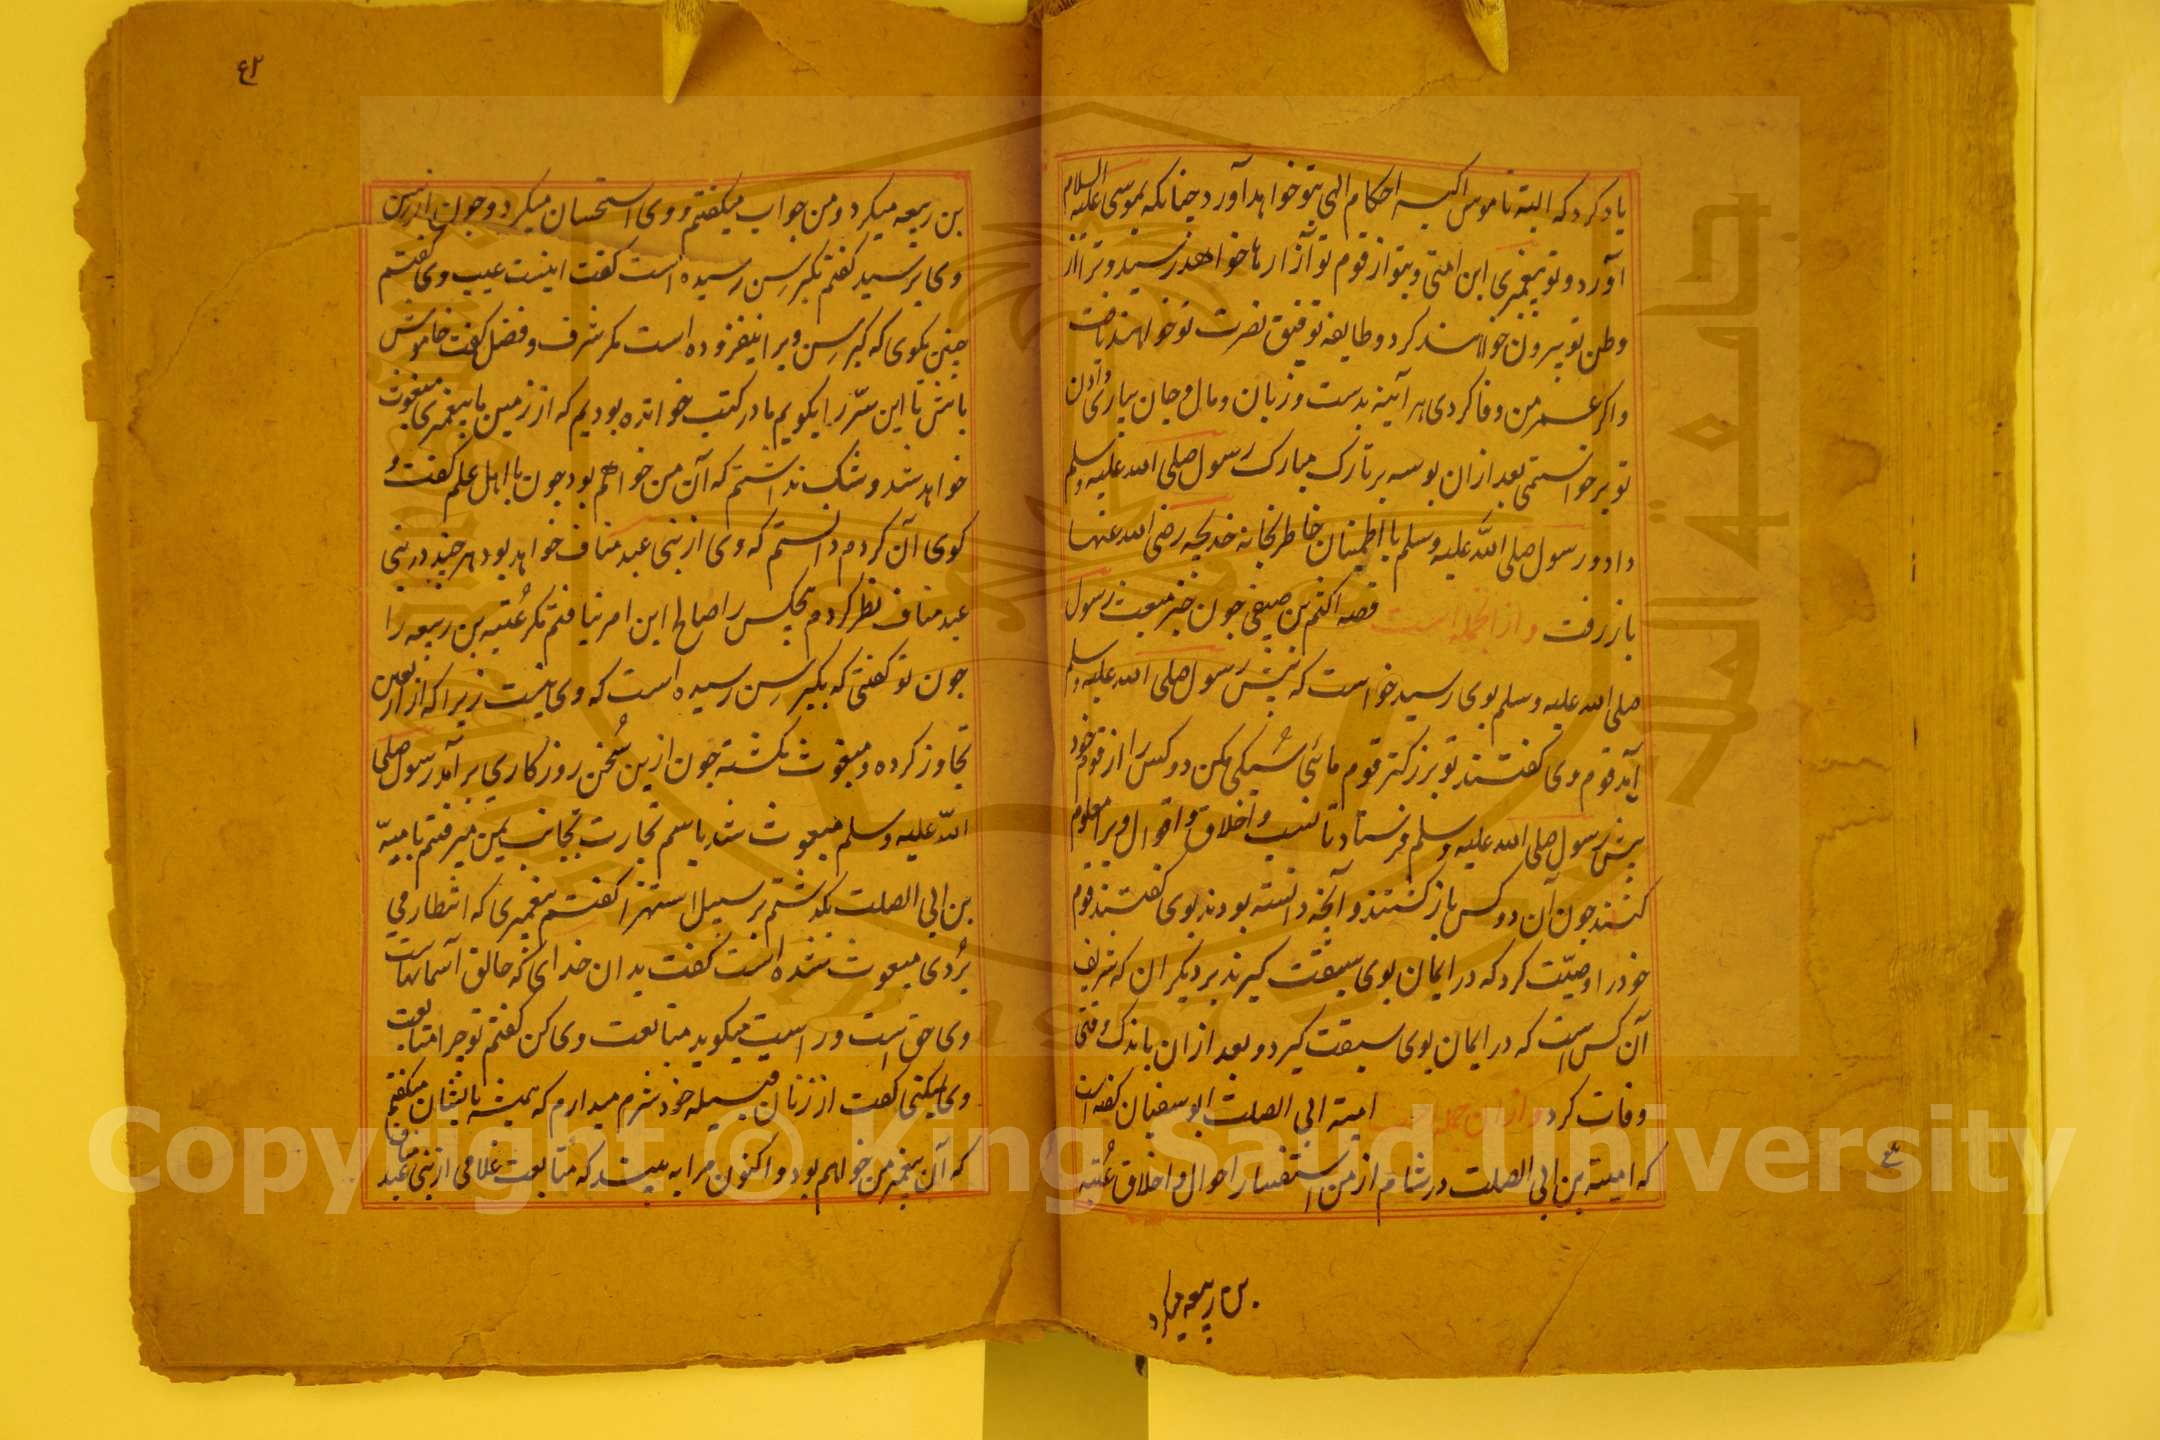 یاد کرد که البته ناموس اکبر احکام الهی بتو خواهد آورد چنانکه بموسی علیه السلام
آورد و تو پیغمبری این امتی و بتو از قوم تو آزارها خواهد رسید و ترا از
وطن تو بیرون خواهند کرد و طایفه توفیق نصرت تو خواهند یافت
و اگر عمر من وفا کردی هر آینه بدست و زبان و مال و جان بیاری دادن
تو برخواستمی بعد از ان بوسه بر تارک مبارک رسول صلی الله علیه وسلم
داد و رسول صلی الله علیه وسلم با اطمینان خاطر بخانه خدیجه رضی الله عنها
باز رفت و از انجمله است قصه اکثم بن صیفی چون خبر مبعث رسول
صلی الله علیه وسلم بوی رسید خواست که پیش رسول صلی الله علیه وسلم
آید قوم وی گفتند تو بزرکتر قوم مائی سبکی مکن دو کس را از قوم خود
پیش رسول صلی الله علیه وسلم فرستاد تا نسب و اخلاق و اقوال ویرا معلوم
کنند چون آن دو کس باز کشتند و آنچه دانسته بودند بوی کفتند قوم
خود را وصیّت کرد که در ایمان بوی سبقت کیرند بر دیکران که شریف
آن کس است که در ایمان بوی سبقت کیرد و بعد از ان باندک وقتی
وفات کرد و از ان جمله است امیة ابی الصلت ابو سفیان کفته است
که امیة بن ابی الصلت در شام از من استفسار احوال و اخلاق عُتبه
بن ربیعه میکرد
بن ربیعه میکرد و من جواب میکفتم و وی استحسان میکرد و چون از سن
وی پرسید کفتم بکبر سن رسیده است کفت اینست عیب وی کفتم
چنین مکوی که کبر سن ویرا نیفزوده است مکر شرف و فضل کفت خاموش
باش تا این سرّ را بکویم ما در کتب خوانده بودیم که از زمین ما پیغمبری مبعوث
خواهد شد و شک نداشتم که آن من خواهم بود چون با اهل علم کفت و
کوی آن کردم دانستم که وی از بنی عبد مناف خواهد بود هر چند در بنی
عبد مناف نظر کردم هیچکس را صالح این امر نیافتم مکر عُتبه بن ربیعه را
چون تو کفتی که بکبر سن رسیده است که وی نیست زیرا که از اربعین
تجاوز کرده و مبعوث نکشته چون ازین سُخن روزکاری بر آمد رسول صلی
الله علیه وسلم مبعوث شد باسم تجارت بجانب یمن میرفتم بامیّه
بن ابی الصلت بکذشتم بر سبیل استهزا کفتم پیغمبری که انتظار می
بردی مبعوث شده است کفت بدان خدای که خالق آسمانهاست
وی حق است و راست میکوید متابعت وی کن کفتم تو چرا متابعت
وی نمیکنی کفت از زنان قبیله خود شرم میدارم که همیشه بایشان میکفتم
که آن پیغمبر من خواهم بود و اکنون مرا به بینند که متابعت غلامی از بنی عبد مناف
Copyright © King Saud University
جامعة الملك سعود
King Saud University
1957